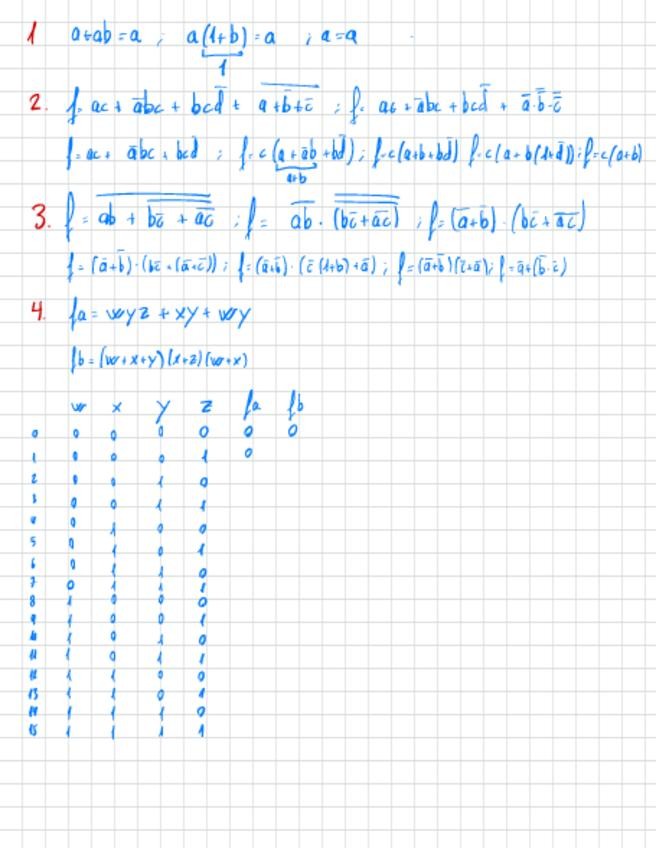 1 a+ab=a ; a(1+b)=a ; a=a
1
2. f= ac + a̅bc + bcd̅ + \overline{a+b̅+c̅} ; f= ac + a̅bc + bcd̅ + a̅·b̿·c̿
f= ac + a̅bc + bcd̅ ; f= c(a+a̅b+bd̅) ; f=c(a+b+bd̅) f=c(a+b(1+d̅)) ; f=c(a+b)
a+b
3. f= \overline{ab + \overline{\overline{bc̅ + \overline{ac}}}} ; f= \overline{ab} · \overline{\overline{(bc̅+\overline{ac})}} ; f=(a̅+b̅) · (bc̅+\overline{ac})
f=(a̅+b̅)·(bc̅+(a̅+c̅)) ; f=(a̅+b̅)·(c̅(1+b)+a̅) ; f=(a̅+b̅)(c̅+a̅) ; f=a̅+(b̅·c̅)
4. fa= wyz + xy + wy
fb=(w+x+y)(x+z)(w+x)
w x y z fa fb
0 0 0 0 0 0 0
1 0 0 0 1 0
2 0 0 1 0
3 0 0 1 1
4 0 1 0 0
5 0 1 0 1
6 0 1 1 0
7 0 1 1 1
8 1 0 0 0
9 1 0 0 1
10 1 0 1 0
11 1 0 1 1
12 1 1 0 0
13 1 1 0 1
14 1 1 1 0
15 1 1 1 1